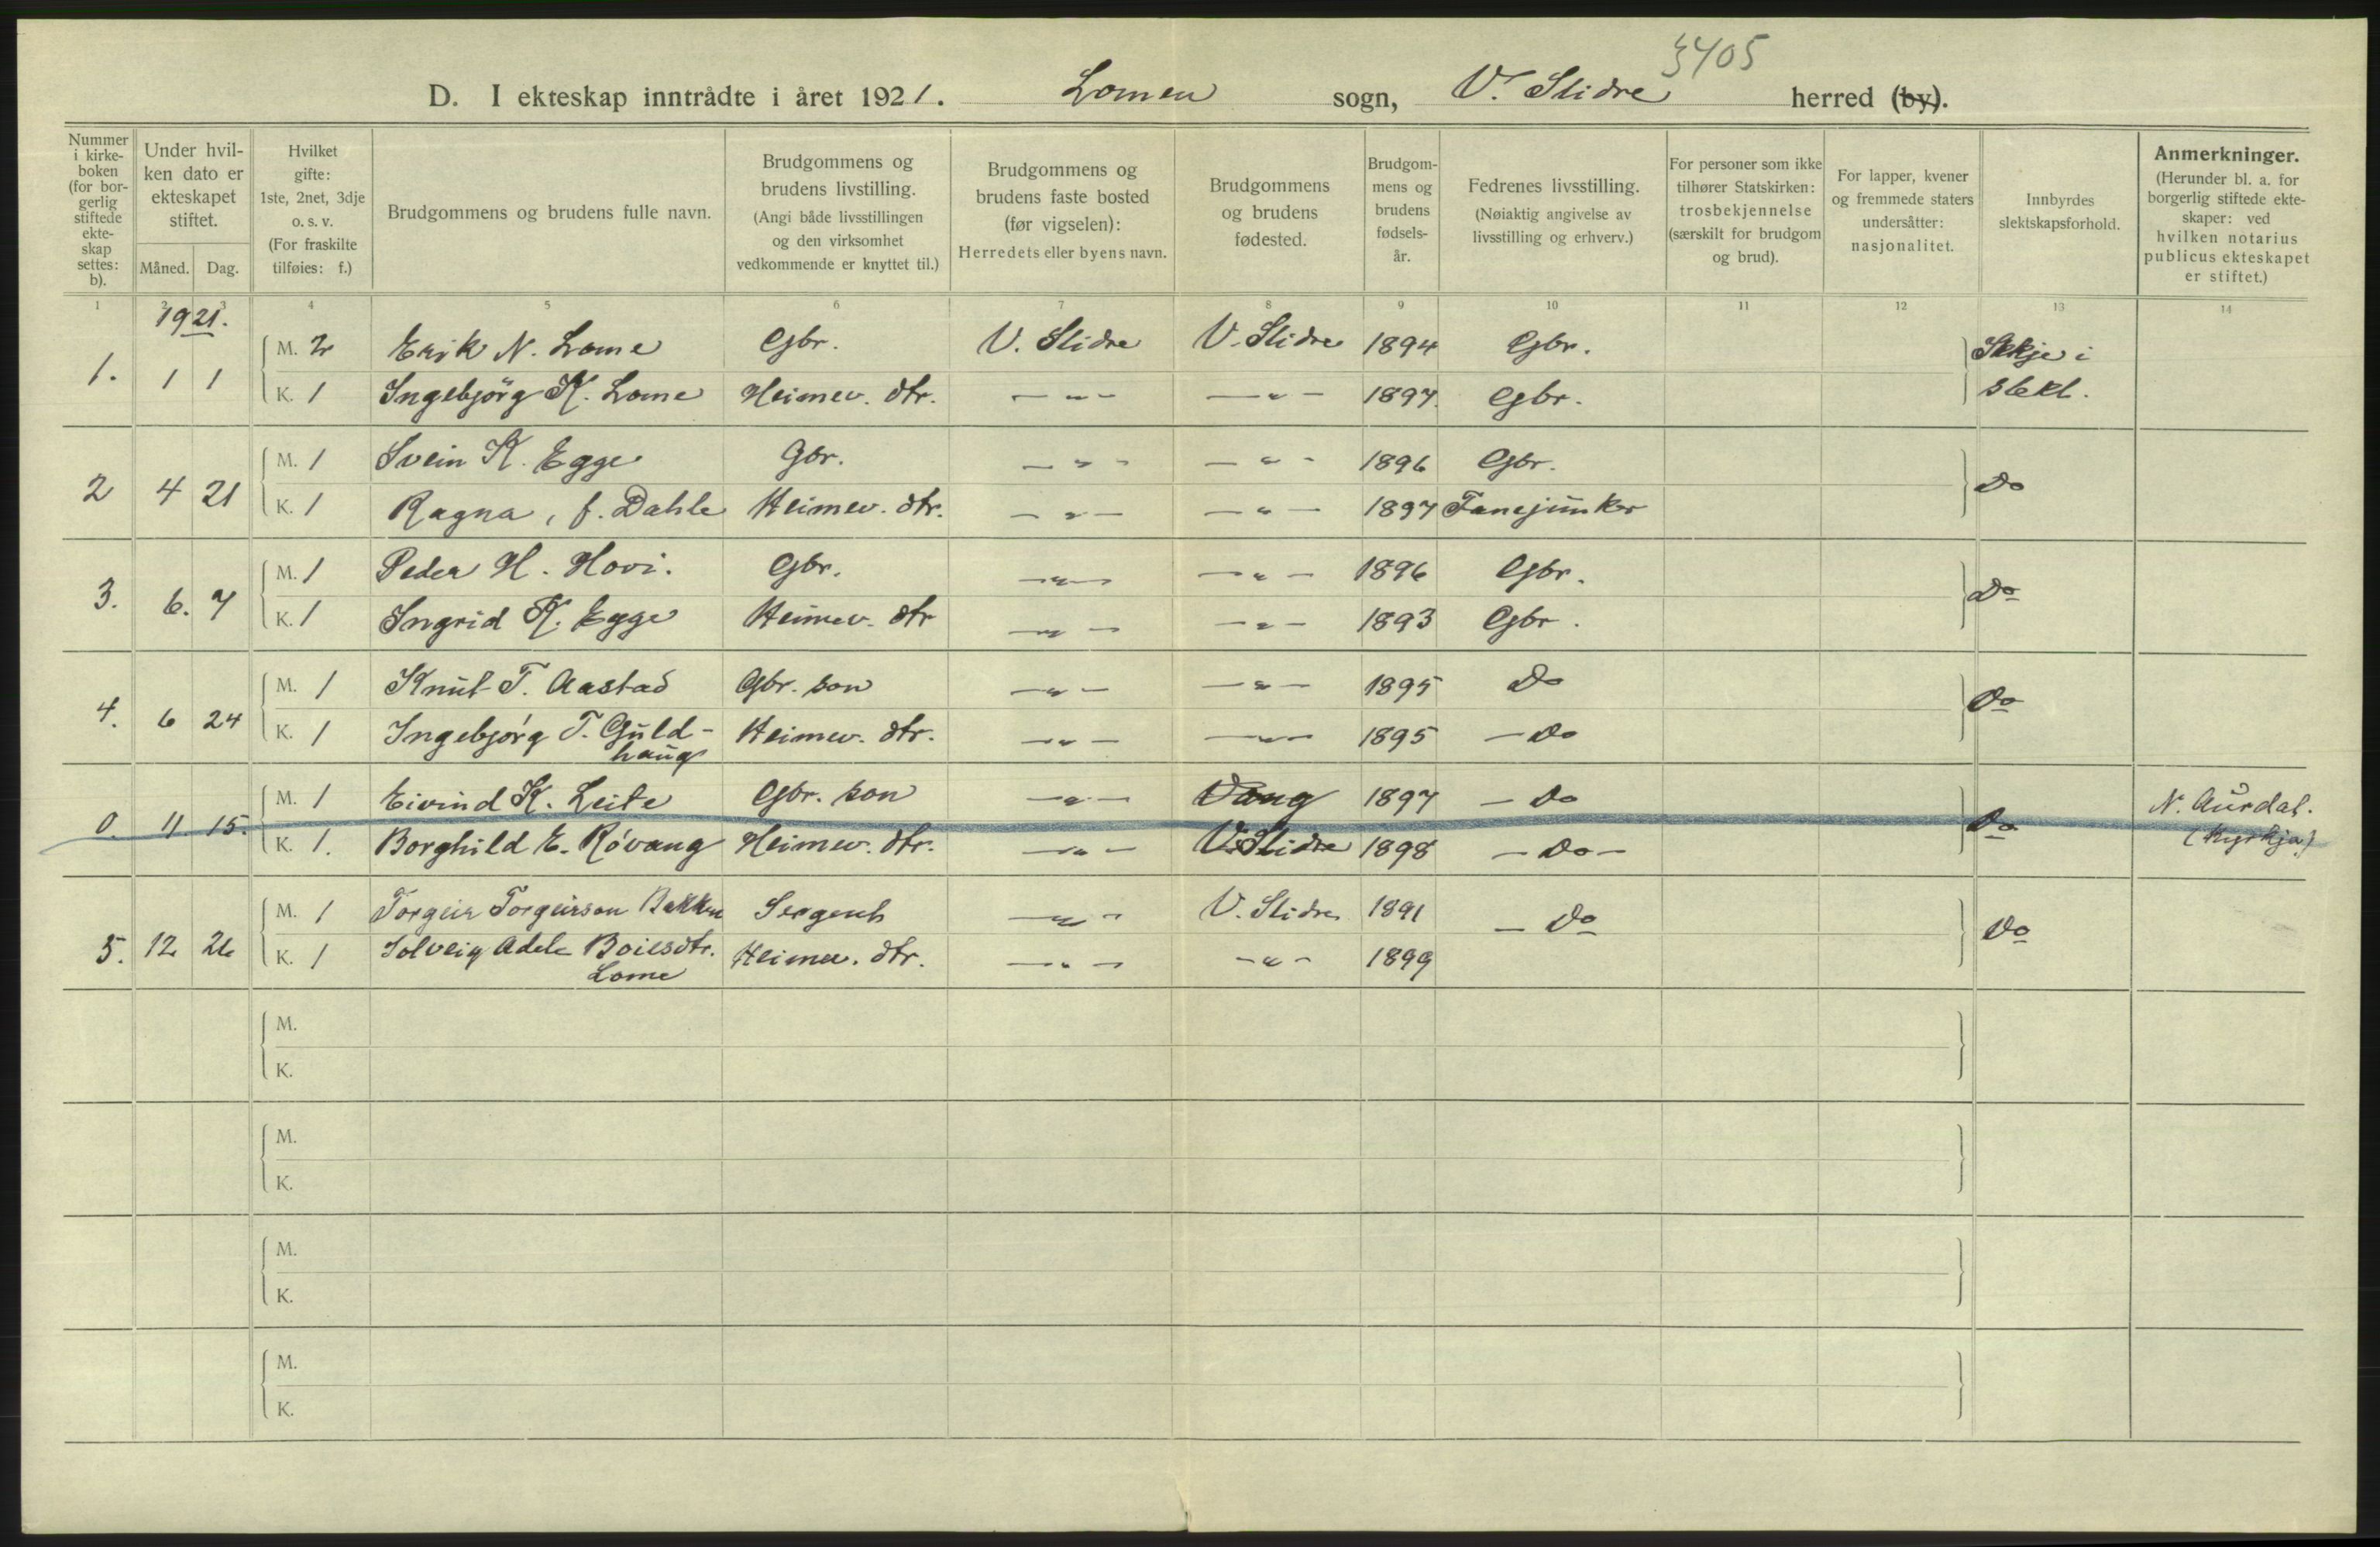 3405
D. I ekteskap inntrådte i året 1921. Lomen sogn, V. Slidre herred (by).
Nummer i kirke-boken (for bor-gerlig stiftede ekte-skap settes: b).
Under hvil-ken dato er ekteskapet stiftet.
Måned. Dag.
Hvilket gifte: 1ste, 2net, 3dje o. s. v. (For fraskilte tilføies: f.)
Brudgommens og brudens fulle navn.
Brudgommens og brudens livstilling. (Angi både livsstillingen og den virksomhet vedkommende er knyttet til.)
Brudgommens og brudens faste bosted (før vigselen): Herredets eller byens navn.
Brudgommens og brudens fødested.
Brudgom-mens og brudens fødsels-år.
Fedrenes livsstilling. (Nøiaktig angivelse av livsstilling og erhverv.)
For personer som ikke tilhører Statskirken: trosbekjennelse (særskilt for brudgom og brud).
For lapper, kvener og fremmede staters undersåtter: nasjonalitet.
Innbyrdes slektskapsforhold.
Anmerkninger. (Herunder bl. a. for borgerlig stiftede ekte-skaper: ved hvilken notarius publicus ekteskapet er stiftet.)
1 2 3 4 5 6 7 8 9 10 11 12 13 14
1921.
M. 2 Erik N. Lome Gbr. V. Slidre V. Slidre 1894 Gbr. Ikkje i
1. 1 1
K. 1 Ingebjörg K. Lome Heimev. dtr. — " — — " — 1897. Gbr. slekt.
M. 1 Svein K. Egge Gbr. — " — — " — 1896 Gbr.
2 4 21 Do
K. 1 Ragna, f. Dahle Heimev. dtr. — " — — " — 1897 Fanejunker
M. 1 Peder H. Hovi. Gbr. — " — — " — 1896 Gbr.
3. 6. 7 Do
K. 1 Ingrid K. Egge Heimev. dtr — " — — " — 1893 Gbr.
M. 1 Knut T. Aastad Gbr. son — " — — " — 1895 Do
4. 6 24 Do
K. 1 Ingebjørg T. Guld- Heimev. dtr. — " — — " — 1895 — Do
haug
M. 1 Eivind K. Leite Gbr. son — " — Vang 1897 — Do N. Aurdal.
0. 11. 15. Do
K. 1. Borghild E. Røvang Heimev. dtr. — " — V. Slidre 1898 — Do — (Kyrkja)
M. 1 Torgeir Torgeirson Bakken Sergent — " — V. Slidre 1891 — Do
5. 12 26 Do
K. 1 Solveig Adele Boiesdtr. Heimev. dtr. — " — — " — 1899
Lome
M.
K.
M.
K.
M.
K.
M.
K.